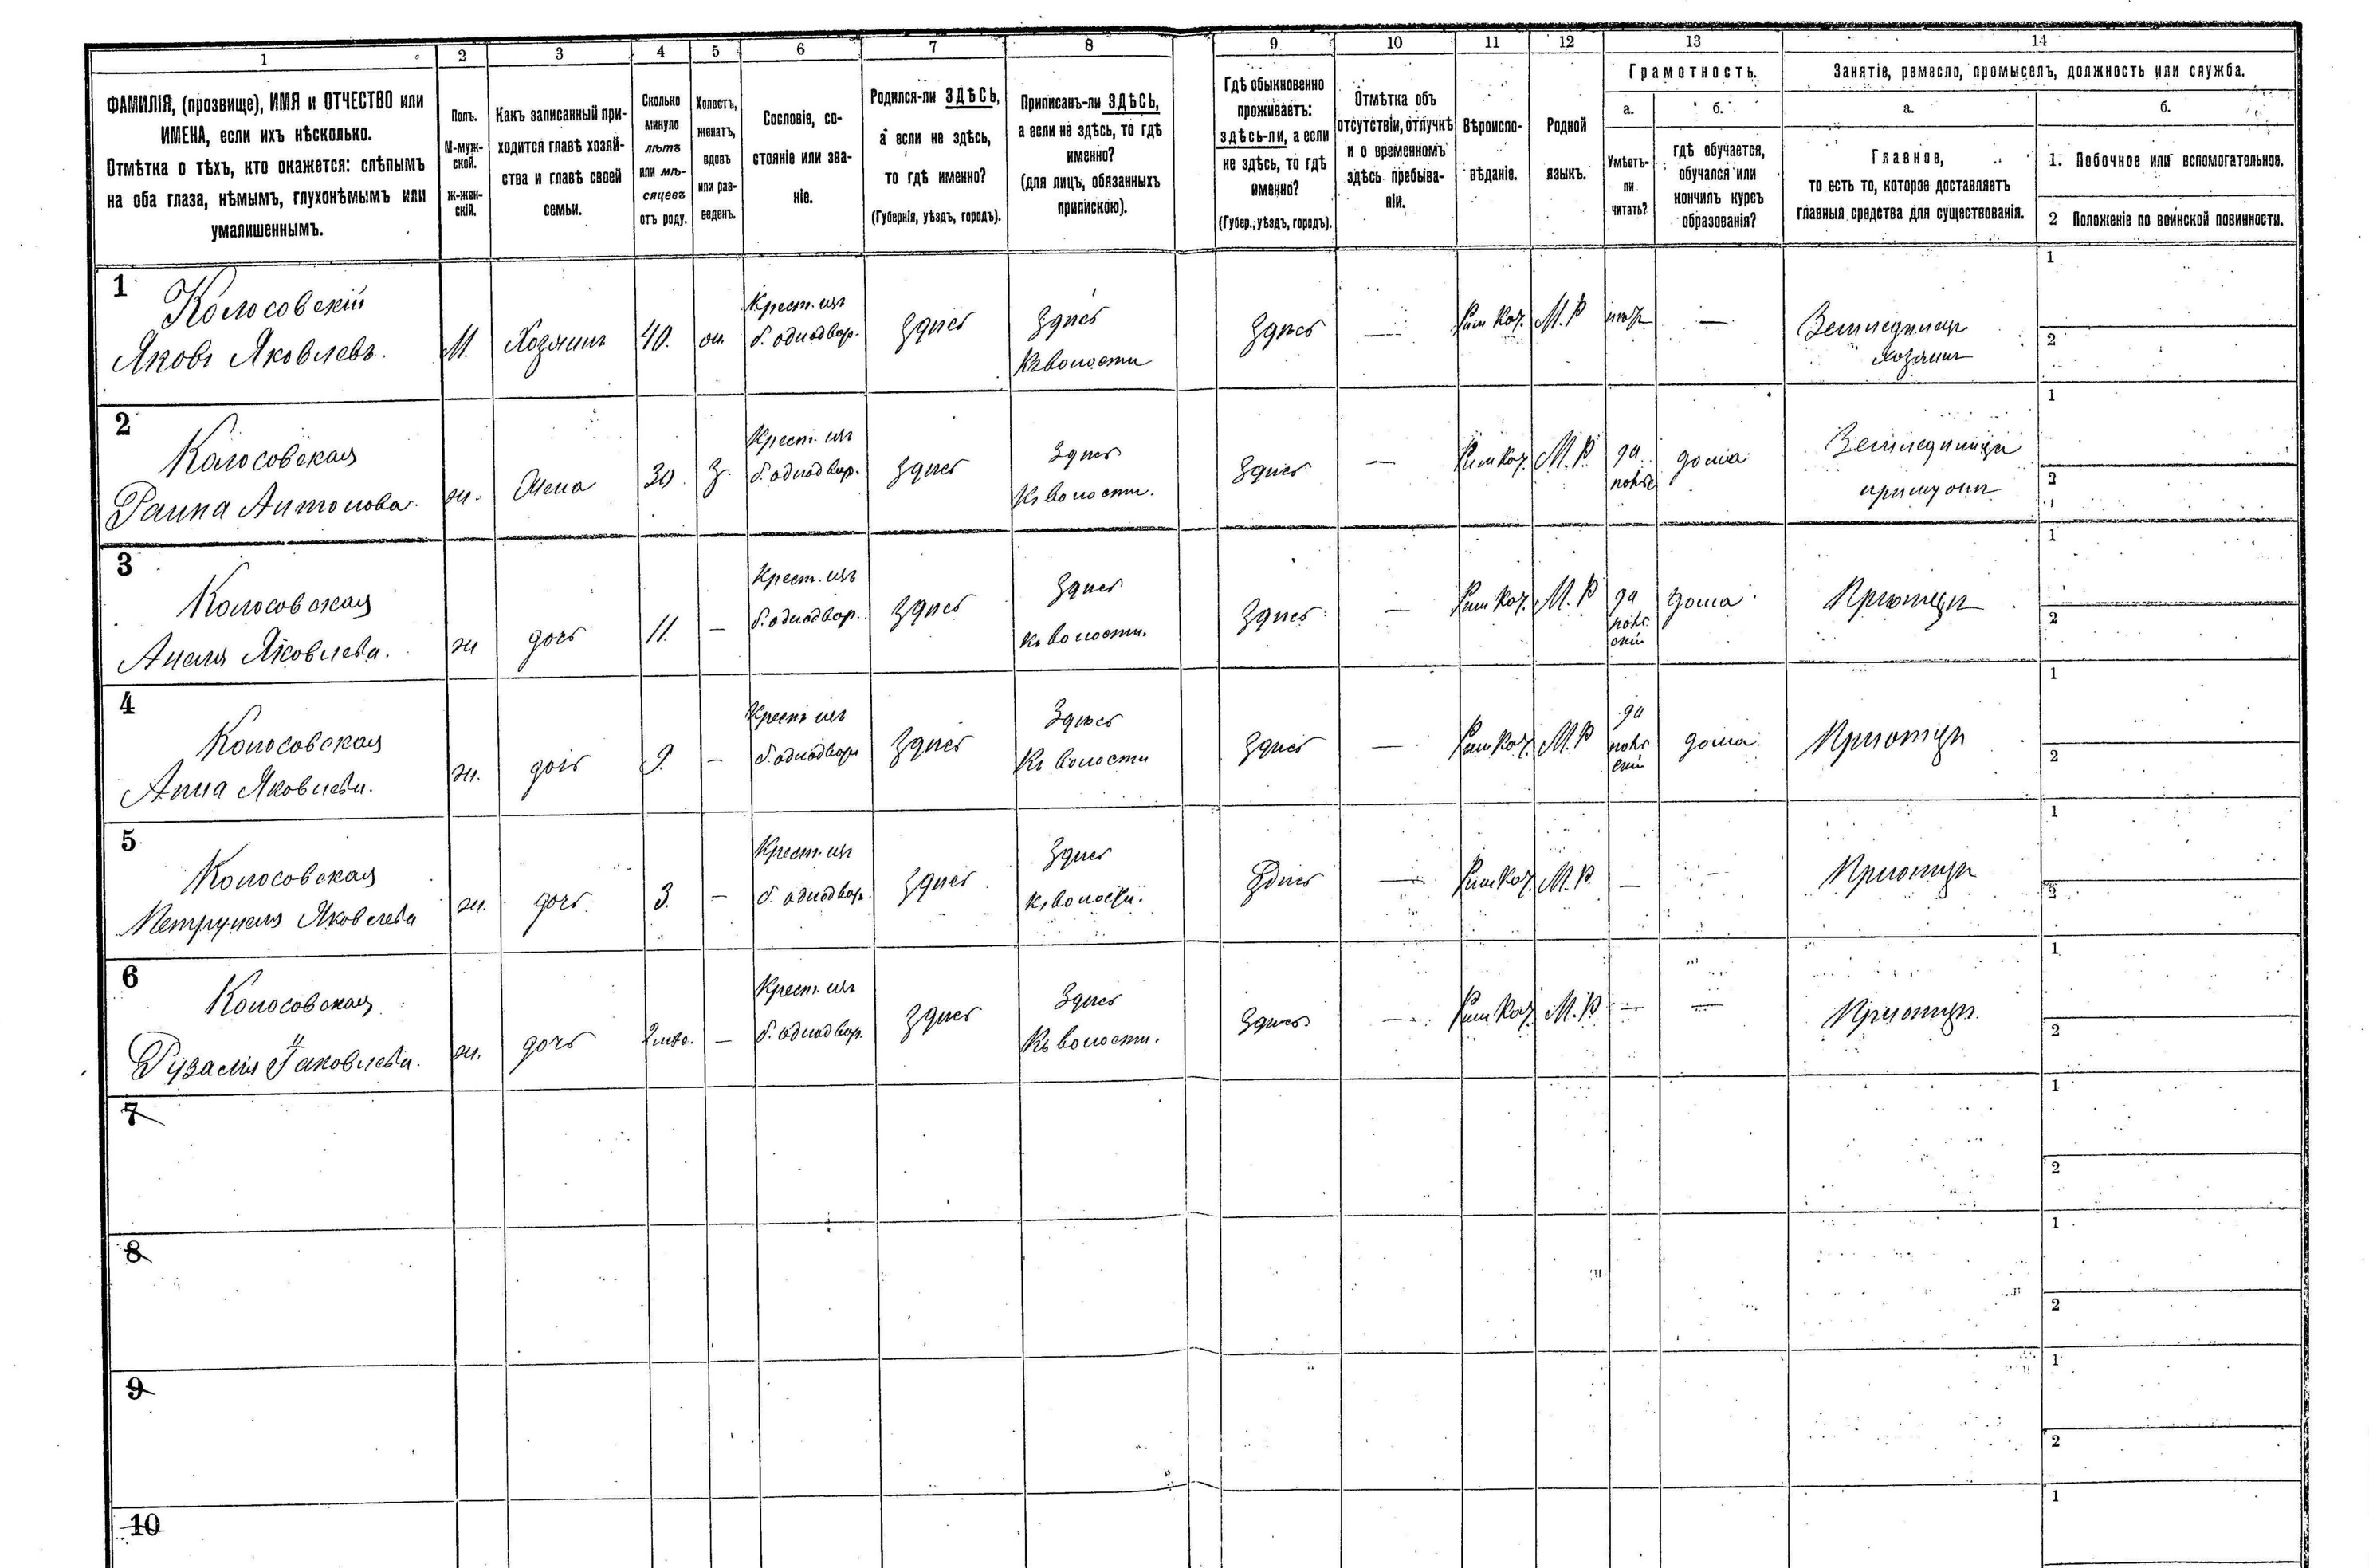 1 2 3 4 5 6 7 8 9 10 11 12 13 14
ФАМИЛІЯ, (прозвище), ИМЯ и ОТЧЕСТВО или
ИМЕНА, если ихъ нѣсколько.
Отмѣтка о тѣхъ, кто окажется: слѣпымъ
на оба глаза, нѣмымъ, глухонѣмымъ или
умалишеннымъ.
Полъ.
М-муж-
ской.
Ж-жен-
скій.
Какъ записанный при-
ходится главѣ хозяй-
ства и главѣ своей
семьи.
Сколько
минуло
лѣтъ
или мѣ-
сяцевъ
отъ роду.
Холостъ,
женатъ,
вдовъ
или раз-
веденъ.
Сословіе, со-
стояніе или зва-
ніе.
Родился-ли ЗДѢСЬ,
а если не здѣсь,
то гдѣ именно?
(Губернія, уѣздъ, городъ).
Приписанъ-ли ЗДѢСЬ,
а если не здѣсь, то гдѣ
именно?
(для лицъ, обязанныхъ
припискою).
Гдѣ обыкновенно
проживаетъ:
здѣсь-ли, а если
не здѣсь, то гдѣ
именно?
(Губер., уѣздъ, городъ).
Отмѣтка объ
отсутствіи, отлучкѣ
и о временномъ
здѣсь пребыва-
ніи.
Вѣроиспо-
вѣданіе.
Родной
языкъ.
Грамотность.
а.
Умѣетъ-
ли
читать?
б.
гдѣ обучается,
обучался или
кончилъ курсъ
образованія?
Занятіе, ремесло, промыселъ, должность или служба.
а.
Главное,
то есть то, которое доставляетъ
главныя средства для существованія.
б.
1. Побочное или вспомогательное.
2 Положеніе по воинской повинности.
1
Колосовскій
Яковъ Яковлевъ.
М.
Хозяинъ
40.
ж.
Крест. изъ
б. однодвор.
Здѣсь
Здѣсь
Къ волости
Здѣсь
—
Рим Кат.
М. Р
нѣтъ
—
Земледѣлецъ
хозяинъ
1
2
2
Колосовская
Ж.
Жена
30
З.
Крест. изъ
б. однодвор.
Здѣсь
Здѣсь
Къ волости.
Здѣсь
—
Рим Кат.
М. Р.
да
дома
1
2
3
Колосовская
Анеля Яковлева.
ж
дочь
11
—
Крест. изъ
б. однодвор.
Здѣсь
Здѣсь
къ волости.
Здѣсь
—
Рим Кат.
М. Р
да
поль
скій
дома
1
2
4
Колосовская
Анна Яковлева.
ж.
дочь
9
—
Крест изъ
б. однодвор
Здѣсь
Здѣсь
Къ волости
Здѣсь
—
Рим Кат.
М. Р
да
поль
скій
дома
1
2
5
Колосовская
Петрунеля Яковлева
ж.
дочь
3.
—
Крест. изъ
б. однодвор.
Здѣсь
Здѣсь
къ волости.
Здѣсь
—
Рим Кат.
М. Р.
—
—
1
2
6
Колосовская
ж.
дочь
2 мѣс.
—
Крест. изъ
б. однодвор.
Здѣсь
Здѣсь
Къ волости.
Здѣсь
—
Рим Кат.
М. Р
—
—
1
2
7
1
2
8
1
2
9
1
2
10
1